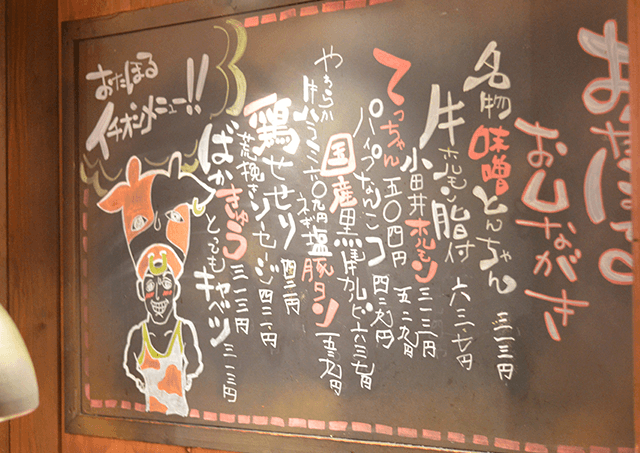 おたぽる
おしながき
名物味噌とんちゃん 三一三円
牛ホルモン脂付
小田井ホルモン 三一三円
てっちゃん 五〇四円
パイプなんこつ 四二九円
やわらか牛ハラミ 六〇九円
国産黒毛牛カルビ 六三七円
ネギ塩豚タン 五三九円
鶏せせり
荒挽きソーセージ 四二一円
ばかきゅう 三一三円
キャベツ 三一三円
おたぽる
イチオシメニュー!!